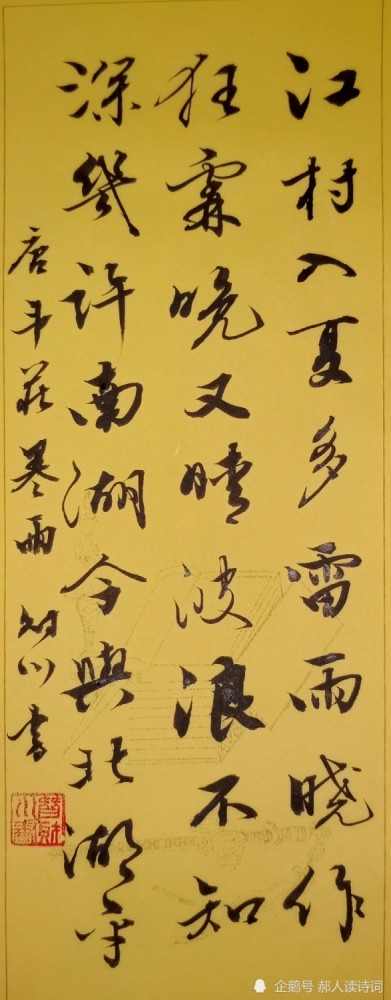 江村入夏多雷雨曉作
狂霖晚又晴波浪不知
深幾許南湖今與北湖平
唐韦莊暴雨 川書
企鹅号 郝人读诗词